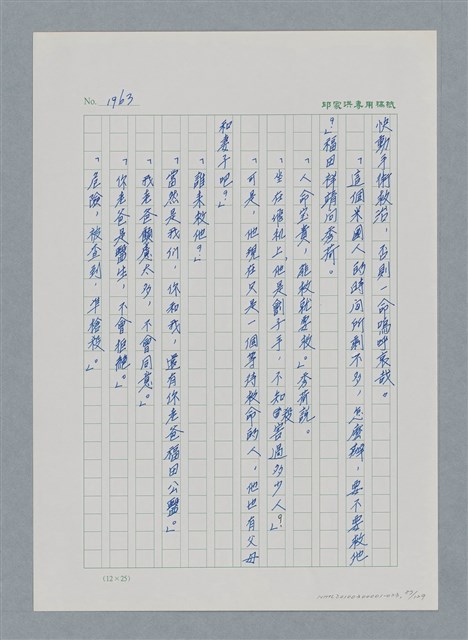 No. 1963
邱家洪專用稿紙
快動手術救治，否則一命嗚呼哀哉。
「這個米國人的時間所剩不多，怎麼辦，要不要救他
？」福田祥靖问秀荷。
「人命宝貴，能救就要救。」秀荷說。
「坐在僧机上，他是劊子手，不知殺害過多少人？」
「可是，他現在只是一個等待救命的人，他也有父母
和妻子吧？」
「誰来救他？」
「當然是我们，你和我，還有你老爸福田公醫。」
「我老爸顧慮太多，不會同意。」
「你老爸是醫生，不會拒絕。」
「危險，被查到，準槍殺。」
(12×25)